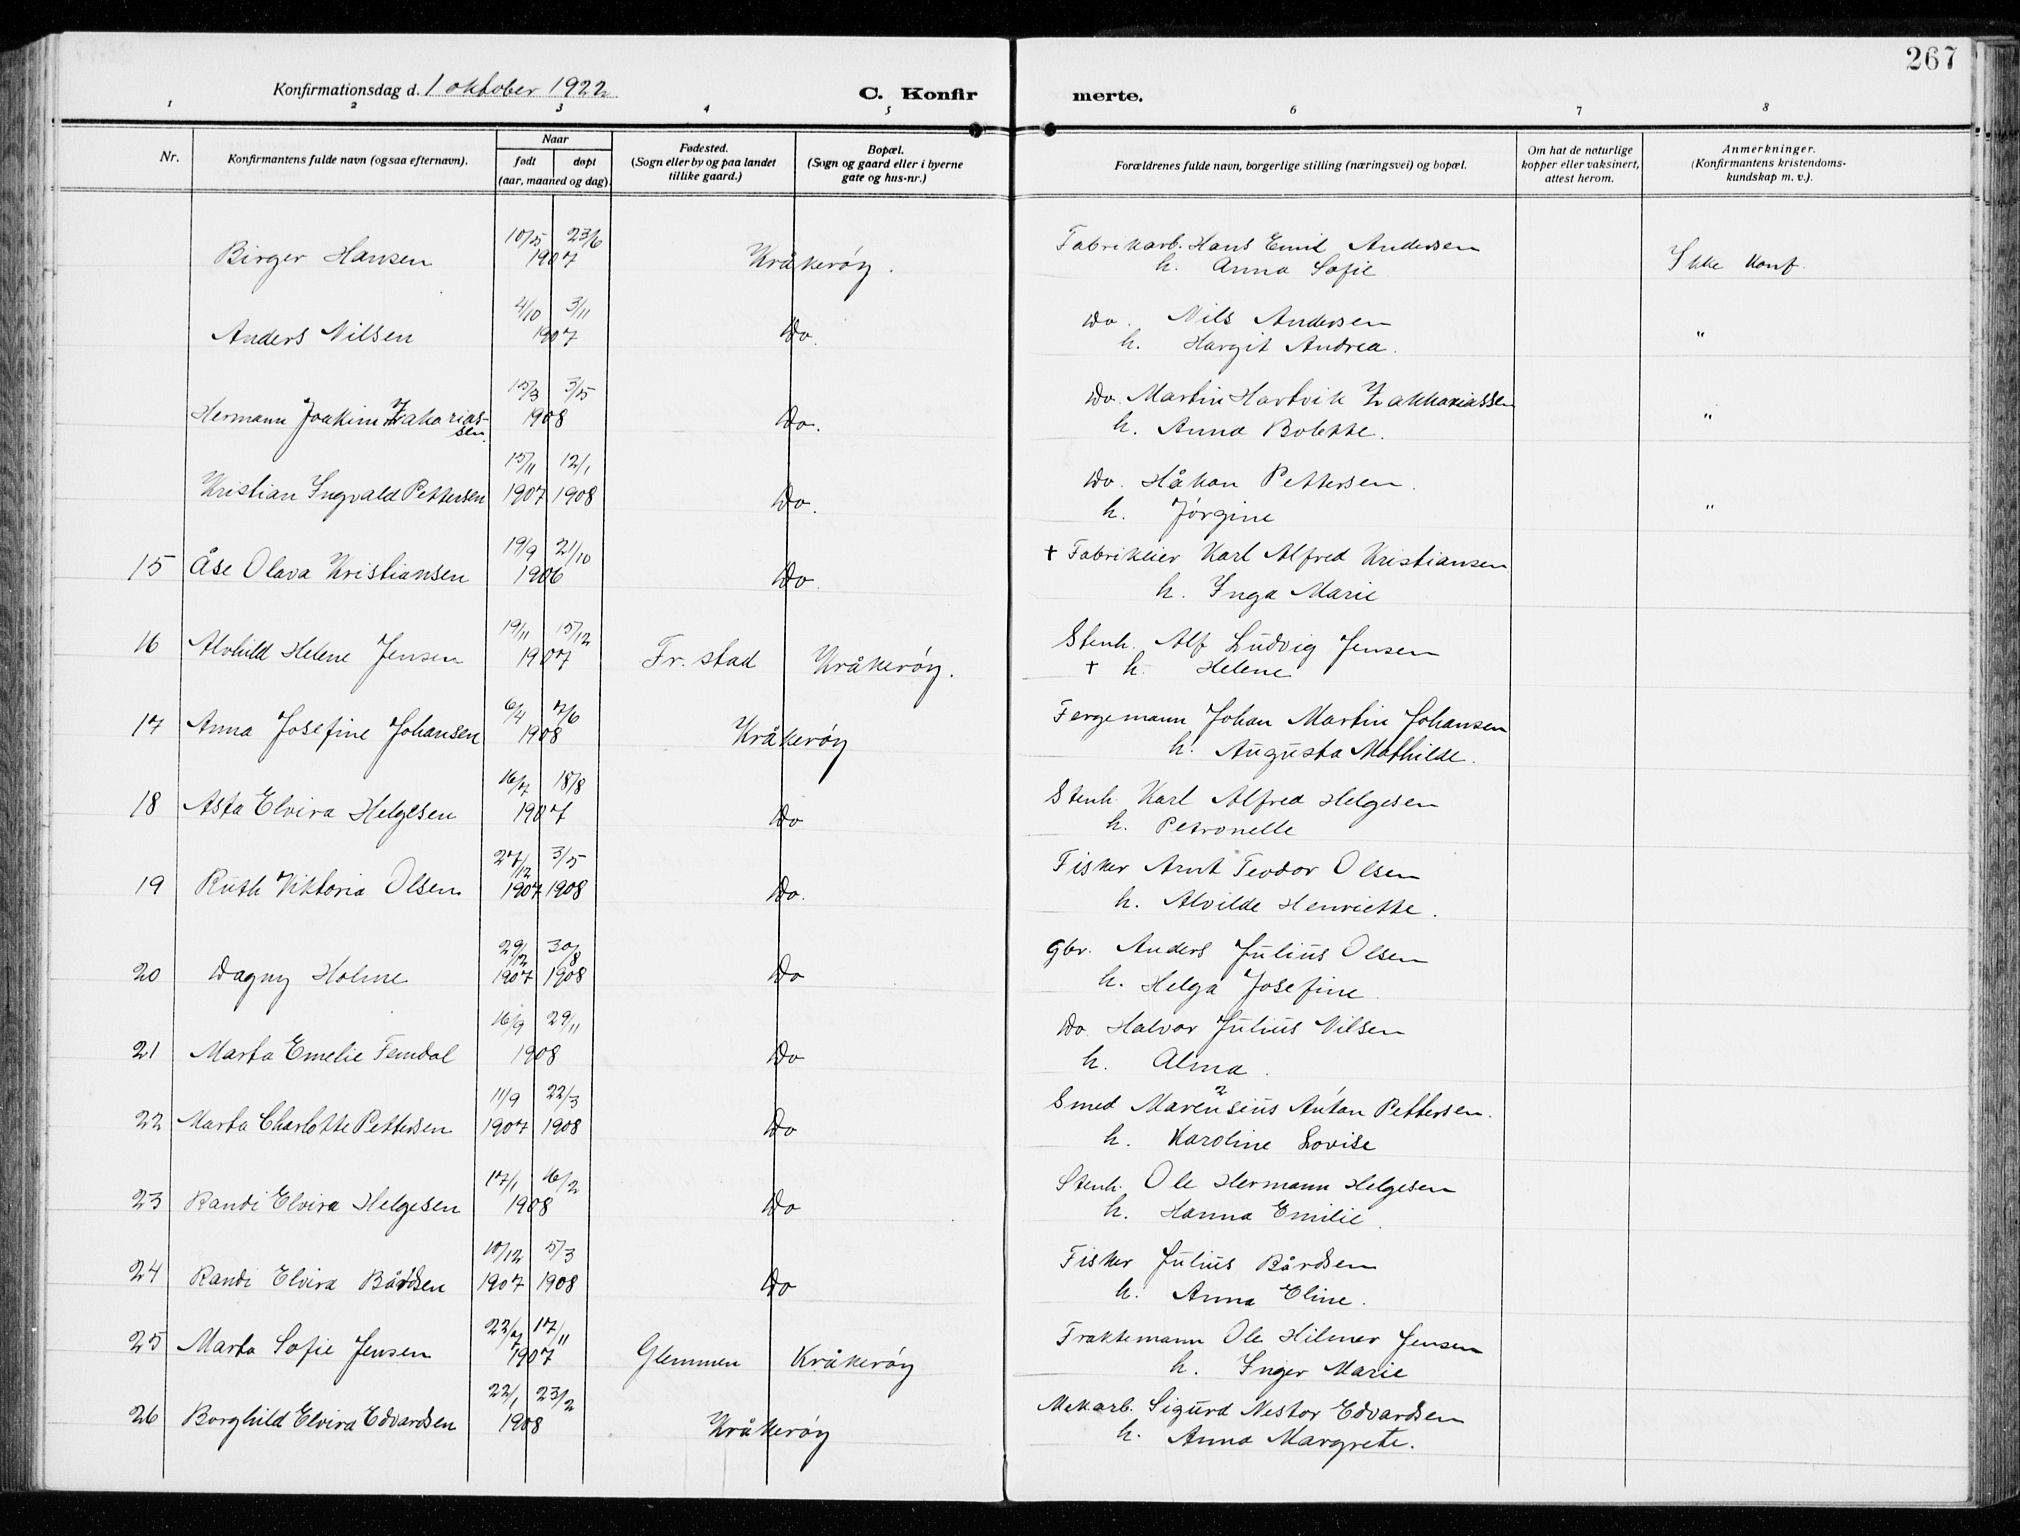 267
Konfirmationsdag d. 1 oktober 1922
C. Konfirmerte.
1 2 3 4 5 6 7 8
Nr.
Konfirmantens fulde navn (ogsaa efternavn).
Naar
født
døpt
(aar, maaned og dag).
Fødested.
(Sogn eller by og paa landet
tillike gaard.)
Bopæl.
(Sogn og gaard eller i byerne
gate og hus-nr.)
Forældrenes fulde navn, borgerlige stilling (næringsvei) og bopæl.
Om hat de naturlige
kopper eller vaksinert,
attest herom.
Anmerkninger.
(Konfirmantens kristendoms-
kundskap m. v.).
10/5 23/6 Fabrikarb. Hans Emil Andersen
Birger Hansen 1907 Kråkerøy. h. Anna Sofie Ikke konf.
4/10 3/11 Do. Nils Andersen
Anders Nilsen 1907 Do. h. Hargit Andrea. "
15/3 3/5 Do. Martin Hartvik Zakkariassen
Hermann Joakim Zakarias-
sen. 1908 Do. h. Anna Bolette. "
15/11 12/1 Do. Håkon Pettersen.
Kristian Ingvald Pettersen 1907 1908 Do. h. Jørgine "
19/9 21/10 † Fabrikeier Karl Alfred Kristiansen
15 Åse Olava Kristiansen 1906 Do. h. Inga Marie
19/11 15/12 Stenh. Alf Ludvig Jensen
16 Alvhild Helene Jensen 1907 Fr. stad Kråkerøy. † h. Helene
6/4 7/6 Fergemann Johan Martin Johansen
17 Anna Josefine Johansen 1908 Kråkerøy h. Augusta Mathilde.
16/7 18/8 Stenh. Karl Alfred Helgesen
18 Asta Elvira Helgesen 1907 Do h. Petronelle
27/12 3/5 Fisker Arnt Teodor Olsen
19 Ruth Viktoria Olsen 1907 1908 Do. h. Alvilde Henriette.
29/12 30/8 Gbr. Anders Julius Olsen
20 Dagny Holme 1907 1908 Do h. Helga Josefine.
16/9 29/11 Do. Halvor Julius Nilsen
21 Marta Emelie Femdal 1908 Do h. Alma.
11/9 22/3 Smed Marensius Anton Pettersen.
22 Marta Charlotte Pettersen 1907 1908 Do h. Karoline Lovise
17/1 16/2 Stenh. Ole Hermann Helgesen
23 Randi Elvira Helgesen 1908 Do h. Hanna Emilie.
10/12 5/3 Fisker Julius Bårdsen
24 Randi Elvira Bårdsen 1907 1908 Do h. Anna Eline.
22/7 17/11 Fraktemann Ole Hilmer Jensen
25 Marta Sofie Jensen 1907 Glemmen Kråkerøy h. Inger Marie
22/1 23/2 Mekarb. Sigurd Nestor Edvardsen
26 Borghild Elvira Edvardsen 1908 Kråkerøy h. Anna Margrete.